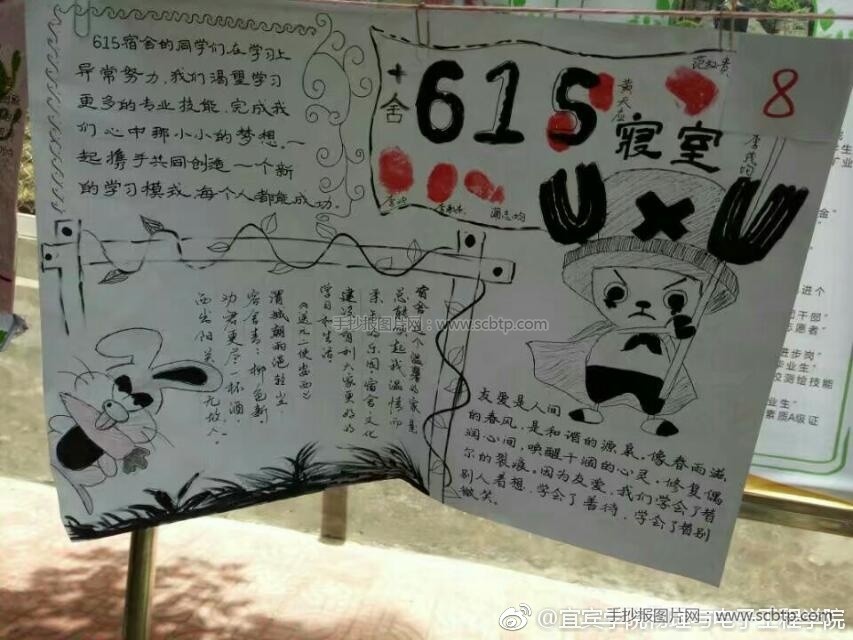 615宿舍的同学们在学习上
异常努力,我们渴望学习
更多的专业技能,完成我
们心中那小小的梦想,一
起携手共同创造一个新
的学习模式,每个人都能成功.
+舍
615
寝室
8
UXU
宿舍是一个温馨的家是
总能唤起我温情而
乐园宿舍文化
建设有利大家更好的
学习和生活.
《送元二使安西》
渭城朝雨浥轻尘,
客舍青青柳色新,
劝君更尽一杯酒,
西出阳关无故人.
友爱是人间
的春风,是和谐的源泉,像春雨滋
润心间,唤醒干涸的心灵,修复偶
尔的裂痕,因为友爱,我们学会了替
别人着想,学会了善待,学会了替别
微笑.
手抄报图片网:www.scbtp.com
手抄报图片网:www.scbtp.com
@宜宾学院物理与电子工程学院